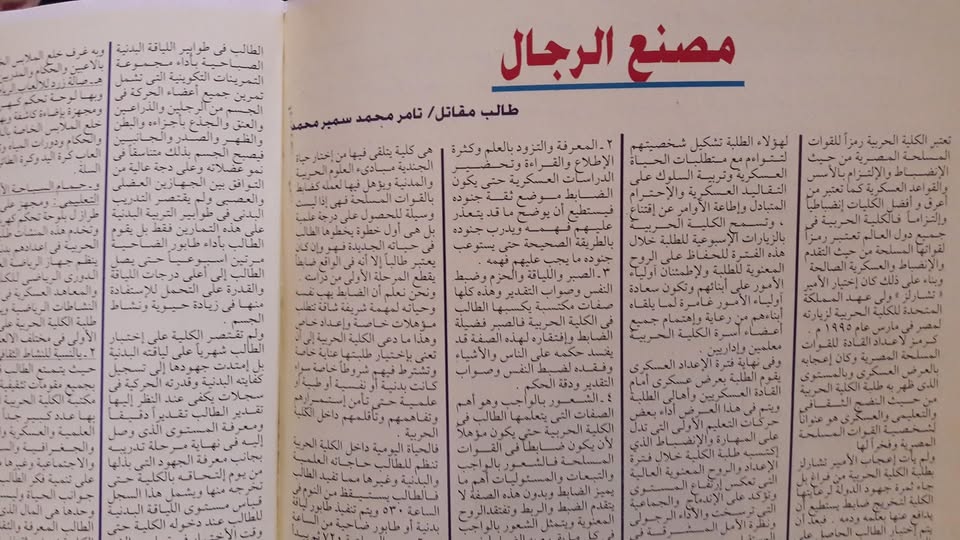 مصنع الرجال
طالب مقاتل/ تامر محمد سمير محمد
تعتبر الكلية الحربية رمزاً للقوات
المسلحة المصرية من حيث
الإنضباط والإلتزام بالأسس
والقواعد العسكرية كما تعتبر من
أعرق و أفضل الكليات إنضباطياً
والتزاماً فالكلية الحربية فى
جميع دول العالم تعتبر رمزاً
لقواتها المسلحة من حيث التقدم
والإنضباط والعسكرية الصالحة
وبناء على ذلك كان إختيار الأمير
« تشارلز » ولى عهد المملكة
المتحدة للكلية الحربية لزيارته
لمصر فى مارس عام ١٩٩٥ م .
كرمز لاعداد القادة للقوات
المسلحة المصرية وكان إعجابه
بالعرض العسكرى وبالمستوى
الذى ظهر به طلبة الكلية الحربية
من حيث النضج الثقافى
والتعليمى والعسكرى هو عنواناً
لشخصية القوات المسلحة
المصرية وفخراً لها
ولم يأت إعجاب الأمير تشارلز
بطلبة الكلية الحربية من فراغ بل
جاء ثمرة جهود الدولة لرعايتها
الكلية لتخريج ضابط يستطيع أن
يدافع عنها بعلمه ودمه . فبعد أن
يتم إختيار الطالب الحاصل على
لهؤلاء الطلبة تشكيل شخصيتهم
لتتواءم مع متطلبات الحياة
العسكرية وتربية السلوك على
التقاليد العسكرية والإحترام
المتبادل وإطاعة الأوامر عن إقتناع
، وتسمح الكلية الحربية
بالزيارات الإسبوعية للطلبة خلال
هذه الفترة للحفاظ على الروح
المعنوية للطلبة ولإطمئنان أولياء
الأمور على أبنائهم وتكون سعادة
أولياء الأمور غامرة لما يلقاه
أبناءهم من رعاية وإهتمام جميع
أعضاء أسرة الكلية الحربية
معلمين وإداريين.
وفى نهاية فترة الإعداد العسكرى
يقوم الطلبة بعرض عسكرى أمام
القادة العسكريين وأهالى الطلبة
ويتم فى هذا العرض أداء بعض
حركات التعليم الأولى التى تدل
على المهارة والإنضباط الذى
إكتسبه طلبة الكلية خلال فترة
الإعداد والروح المعنوية العالية
التى تعكس إرتفاع المستوى
وتؤكد على الإندماج والجماعية
التى ترسخت والأداء الرجولى
ونظرة الأمل المشرقة فى
٢ـ المعرفة والتزود بالعلم وكثرة
الإطلاع والقراءة وتحضير
الدراسات العسكرية حتى يكون
الضابط موضع ثقة جنوده
فيستطيع أن يوضح ما قد يتعذر
عليهم فهمه ويدرب جنوده
بالطريقة الصحيحة حتى يستوعب
جنوده ما يجب عليهم فهمه .
٣ـ الصبر واللياقة والحزم وضبط
النفس وصواب التقدير وهذه كلها
صفات مكتسبة يكسبها الطالب
فى الكلية الحربية فالصبر فضيلة
الضابط وإفتقاره لهذه الصفة قد
يفسد حكمه على الناس والأشياء
وفقده لضبط النفس وصواب
التقدير ودقة الحكم .
٤ـ الشعور بالواجب وهو أهم
الصفات التى يتعلمها الطالب فى
الكلية الحربية حتى يكون مؤهلاً
لأن يكون ضابطاً فى القوات
المسلحة فالشعور بالواجب
والتبعات والمسئوليات أهم ما
يميز الضابط وبدون هذه الصفة لا
يتقدم الضبط والربط وتفتقد الروح
المعنوية ويتمثل الشعور بالواجب
هى كلية يتلقى فيها من إختار حياة
الجندية مبادىء العلوم الحربية
والمدنية ويؤهل فيها لعمله كضابط
بالقوات المسلحة فهى إذا ليست
وسيلة للحصول على درجة علمية
بل هى أول خطوة يخطوها الطالب
فى حياته الجديدة فهو وإن كان
يعتبر طالباً إلا أنه فى الواقع ضابط
يقطع المرحلة الأولى من دراسته
ونحن نعلم أن الضابط يهب نفسه
وحياته لمهمة شريفة شاقة تتطلب
مؤهلات خاصة وإعداد خاص
وهذا ما دعى الكلية الحربية إلى أن
تعنى بإختيار طلبتها عناية خاصة
وتشترط فيهم شروطاً خاصة سواء
كانت بدنية أو نفسية أو طبية أو
علمية حتى تأمن إستمرارهم
وتفاهمهم وتأقلمهم داخل الكلية
الحربية .
فالحياة اليومية داخل الكلية الحربية
تنظم للطالب حاجاته العلمية
والبدنية وغيرها مما تفيد الطالب
فالطالب يستيقظ من النوم فى
الساعة ٥٣٠ ويتم تنفيذ طابور لياقة
بدنية أو طابور ضاحية من الساعة
الطالب فى طوابير اللياقة البدنية
الصباحية بأداء مجموعة
التمرينات التكوينية التى تشمل
تمرين جميع أعضاء الحركة فى
الجسم من الرجلين والذراعين
والعنق و الجذع بأجزاءه والبطن
والظهر والصدر والجانبين
فيصبح الجسم بذلك متناسقاً فى
نمو عضلاته وعلى دجة عالية من
التوافق بين الجهازين العضلى
والعصبى ولم يقتصر التدريب
البدنى فى طوابير التربية البدنية
على هذه التمارين فقط بل يقوم
الطالب بأداء طابور الضاحية
مرتين اسبوعياً حتى يصل
الطالب إلى أعلى درجات اللياقة
والقدرة على التحمل للإستفادة
منها فى زيادة حيوية ونشاط
الجسم .
ولم تقتصر الكلية على إختبار
الطالب شهرياً على لياقته البدنية
بل إمتدت جهودها إلى تسجيل
كفايته البدنية وقدرته الحركية فى
سجلات يكفى عند النظر إليها
تقدير الطالب تقديراً دقيقاً
ومعرفة المستوى الذى وصل
إليه فى نهاية مرحلة تدريبه
بجانب معرفة الجهود التى بذلها
من يوم إلتحاقه بالكلية حتى
تخرجه منها ويشمل هذا السجل
قياس مستوى اللياقة البدنية
للطالب عند دخوله الكلية حتى
وبه غرف خلع الملابس
بالاعبين والحكام والمدربين
وبها لوحة تحكم كهربائية
ومجهزة بإضاءة كاشفة
خلع الملابس الخاصة
والحكام ودورات المياه
العاب كرة اليد وكرة الطائرة
السلة .
وحمام السباحة
التعليمى : ومجهز على
طراز ل بلوحة تحكم
وتخدم هذه المنشآت
الحربية فى إعدادهم
ينظم جهاز الرياضة
الدورى الرياضى
والمعاهد العسكرية
النشاطات الرياضية
طلبة الكلية الحربية على
الأولى فى مختلف الالعاب
٢ـ بالنسبة للنشاط الثقافى
حيث يتمتع الطالب
بجميع مقومات تثقيفية
مكتبة الكلية الحربية
بها عدد كبير
العلمية والعسكرية
والجغرافية
والاجتماعية وغيرها
على تنمية فكر الطالب
جوانب الحياة
وحدها هى المال الذى
الطالب المعرفة